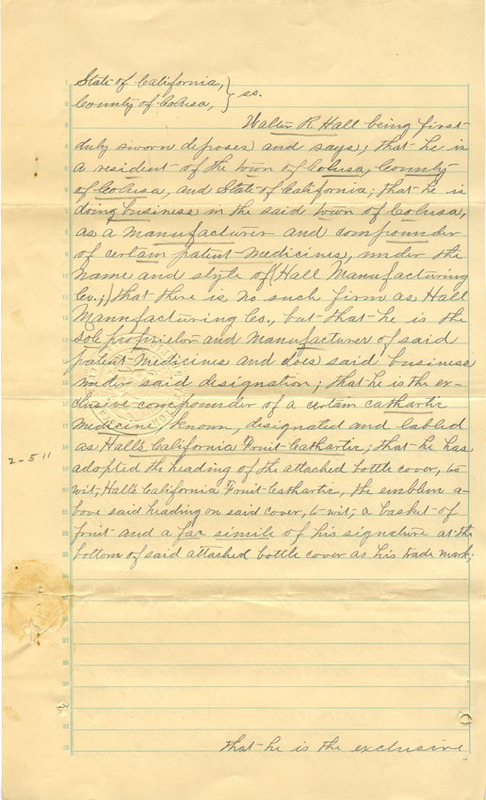 State of California, } ss.
County of Colusa, }
Walter R. Hall being first
duly sworn deposes and says, that he is
a resident of the town of Colusa, County
of Colusa, and State of California; that he is
doing business in the said town of Colusa,
as a manufacturer and compounder
of certain patent medicines, under the
name and style of (Hall Manufacturing
Co.,) that there is no such firm as Hall
Mannfacturing Co., but that he is the
sole proprietor and manufacturer of said
patent medicines and does said business
under said designation; that he is the ex-
clusive compounder of a certain cathartic
medicine, known, designated and labled
as Hall's California Fruit-Cathartic; that he has
2-511
adopted the heading of the attached bottle cover, to
wit; Hall's California Fruit-Cathartic, the emblem a-
bove said heading on said cover, to wit; a basket of
fruit and a fac simile of his signature at the
bottom of said attached bottle cover as his trade mark;
that he is the exclusive